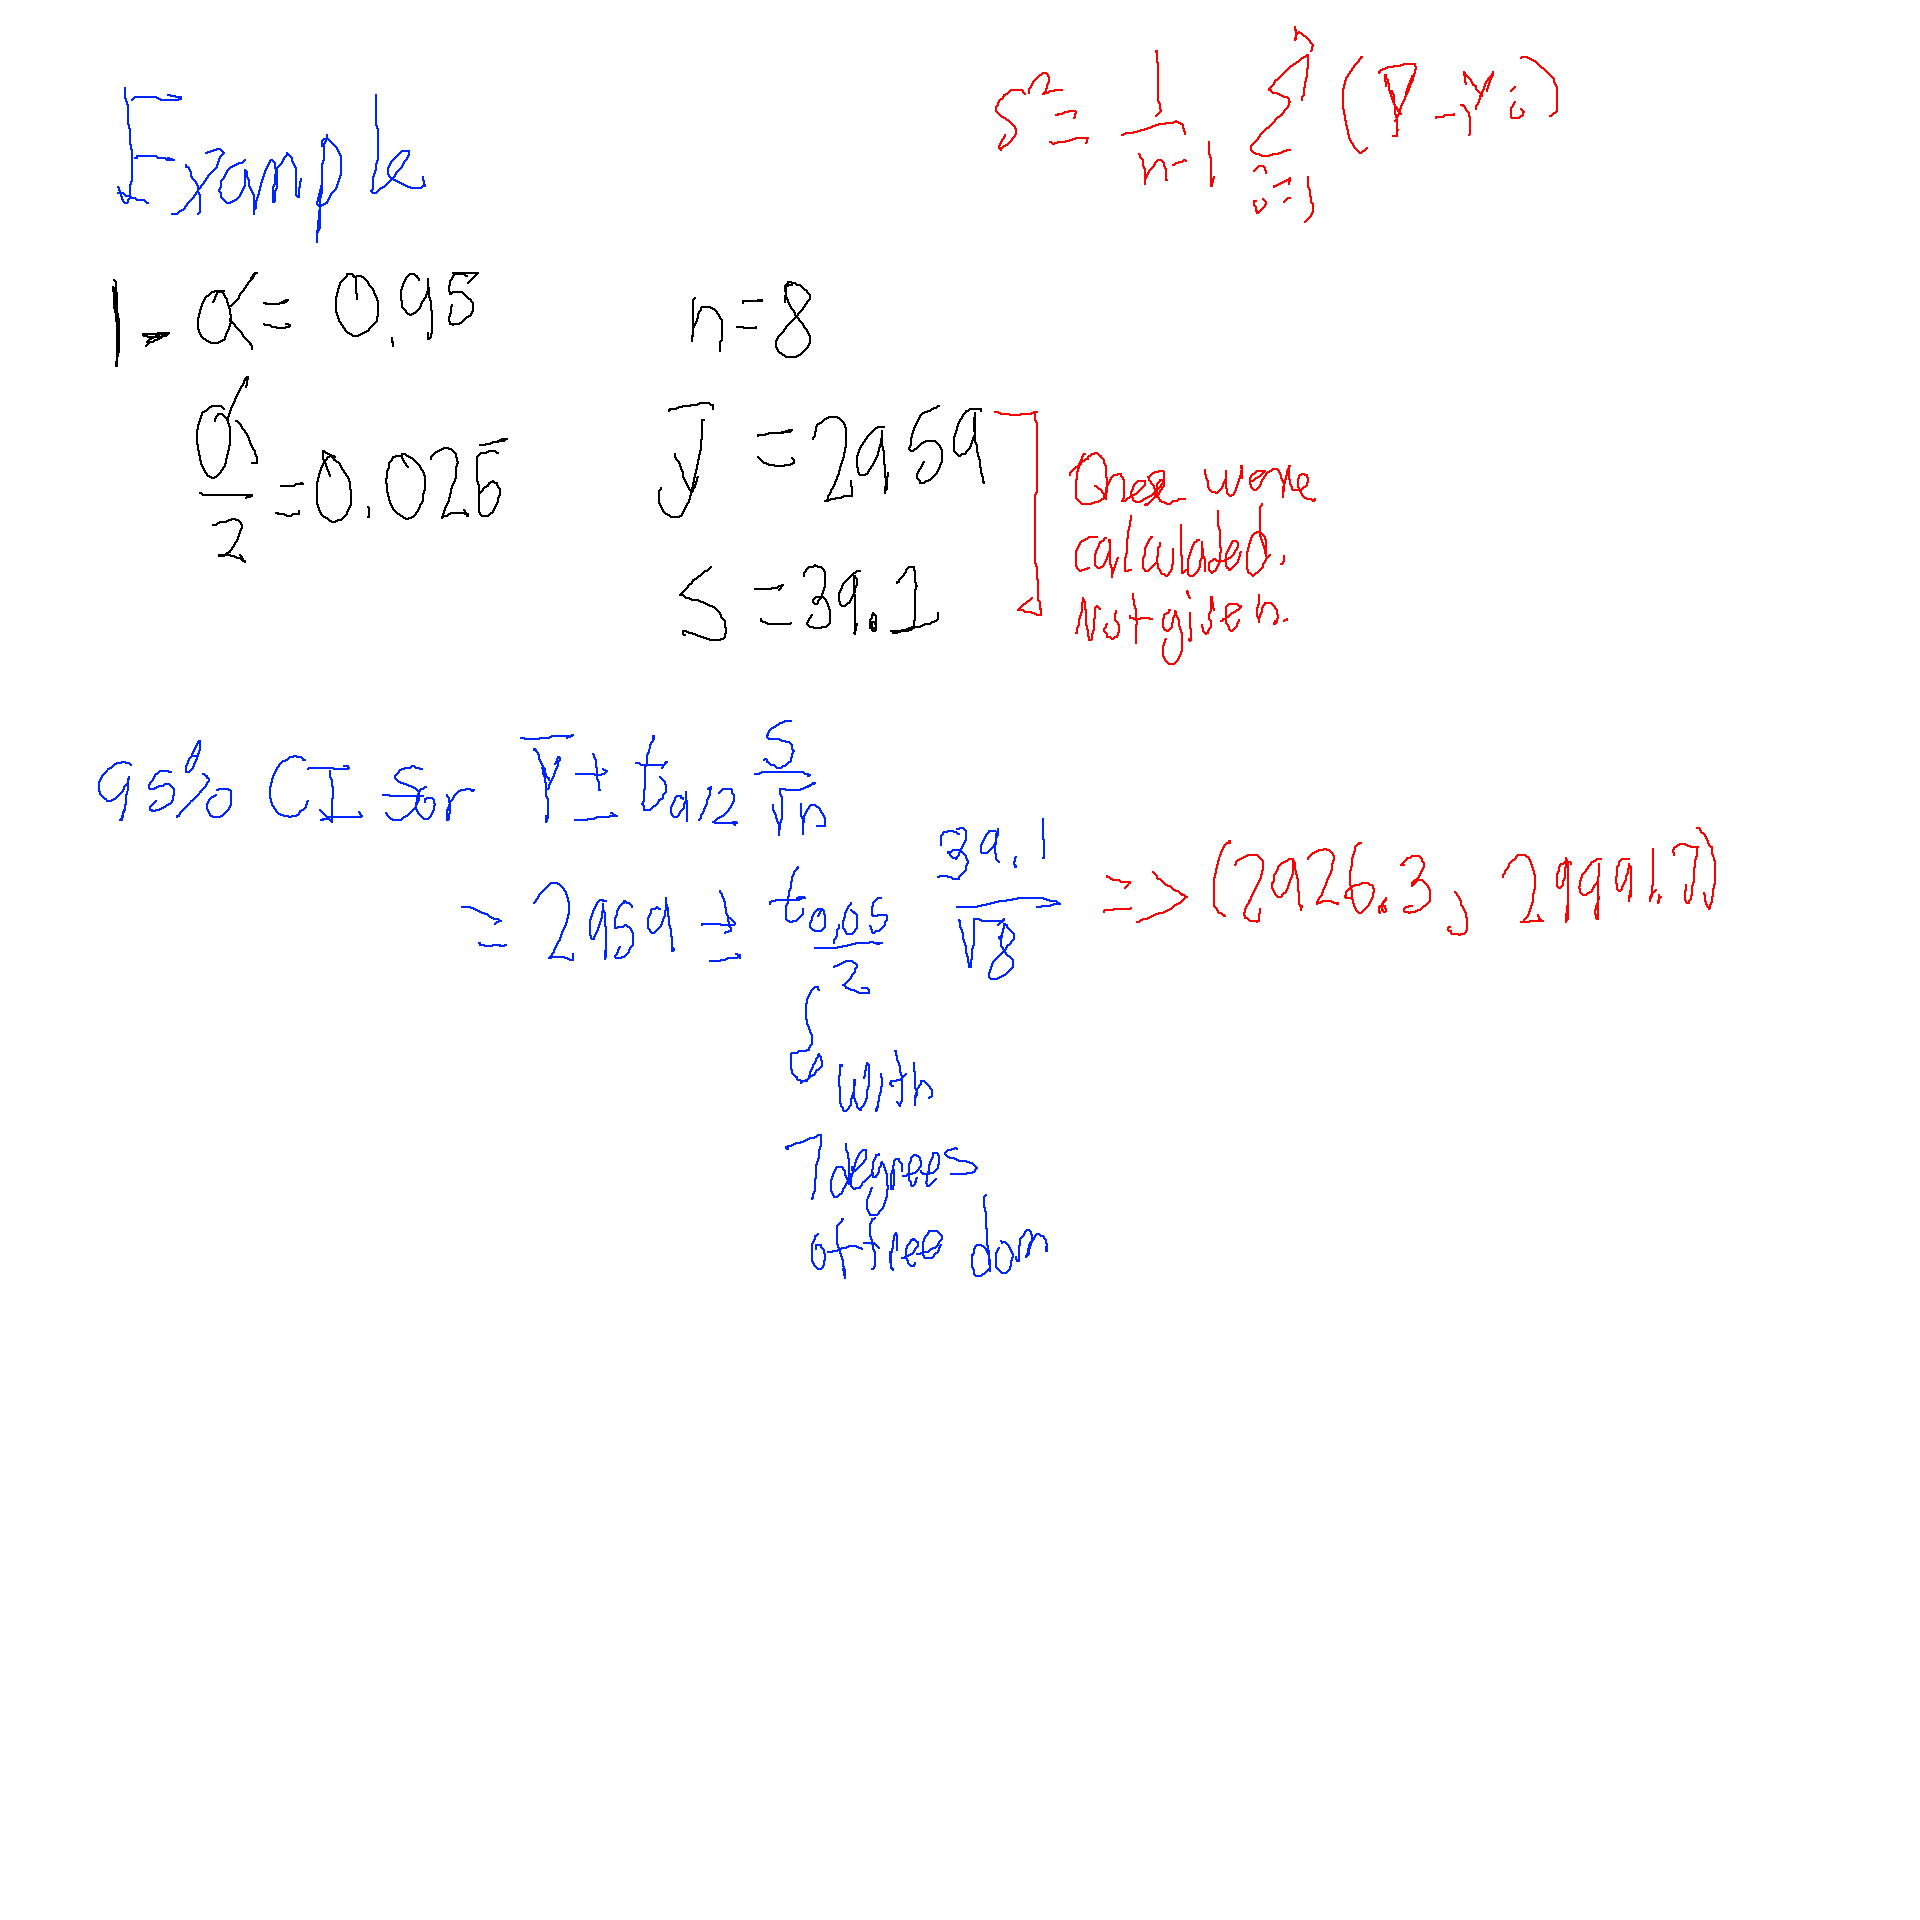 Example
S² = 1/(n-1) Σ_{i=1}^{n} (Y̅ - Yi)
1 - α = 0.95
n = 8
α/2 = 0.025
y̅ = 2959
S = 39.1
were
calculated.
Not given.
95% CI for Y̅ ± t_{α/2} S/√n
= 2959 ± t_{0.05/2} 39.1/√8 => (2926.3, 29991.7)
with
7 degrees
of freedom